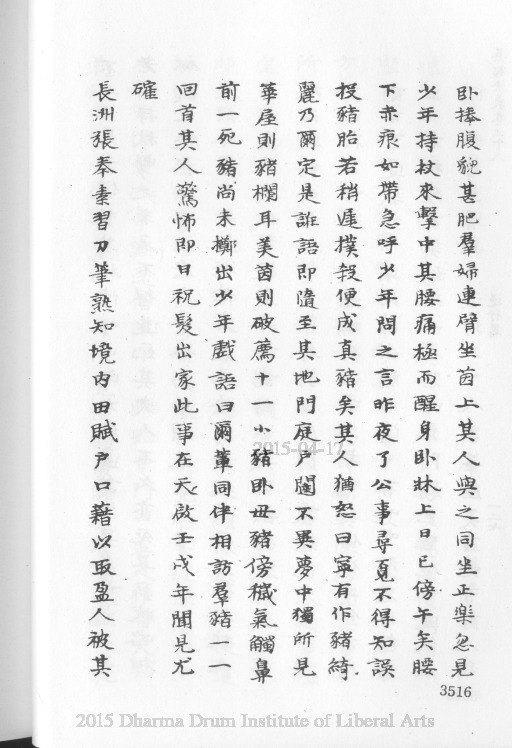 臥捧腹貌甚肥羣婦連臂坐茵上其人與之同坐正樂忽見
少年持杖來擊中其腰痛極而醒身臥牀上日已傍午矣腰
下赤痕如帶急呼少年問之言昨夜了公事尋覓不得知誤
投豬胎若稍遲撲殺便成真豬矣其人猶怒曰寧有作豬綺
麗乃爾定是誑語即隨至其地門庭戶闥不異夢中獨所見
華屋則豬欄耳美茵則破薦十一小豬臥母豬傍穢氣觸鼻
前一死豬尚未擲出少年戲語曰爾輩同伴相訪羣豬一一
回首其人驚怖即日祝髮出家此事在天啟壬戌年聞見尤
確
長洲張奉素習刀筆熟知境內田賦戶口藉以取盈人被其
3516
2015-04-17
2015 Dharma Drum Institute of Liberal Arts